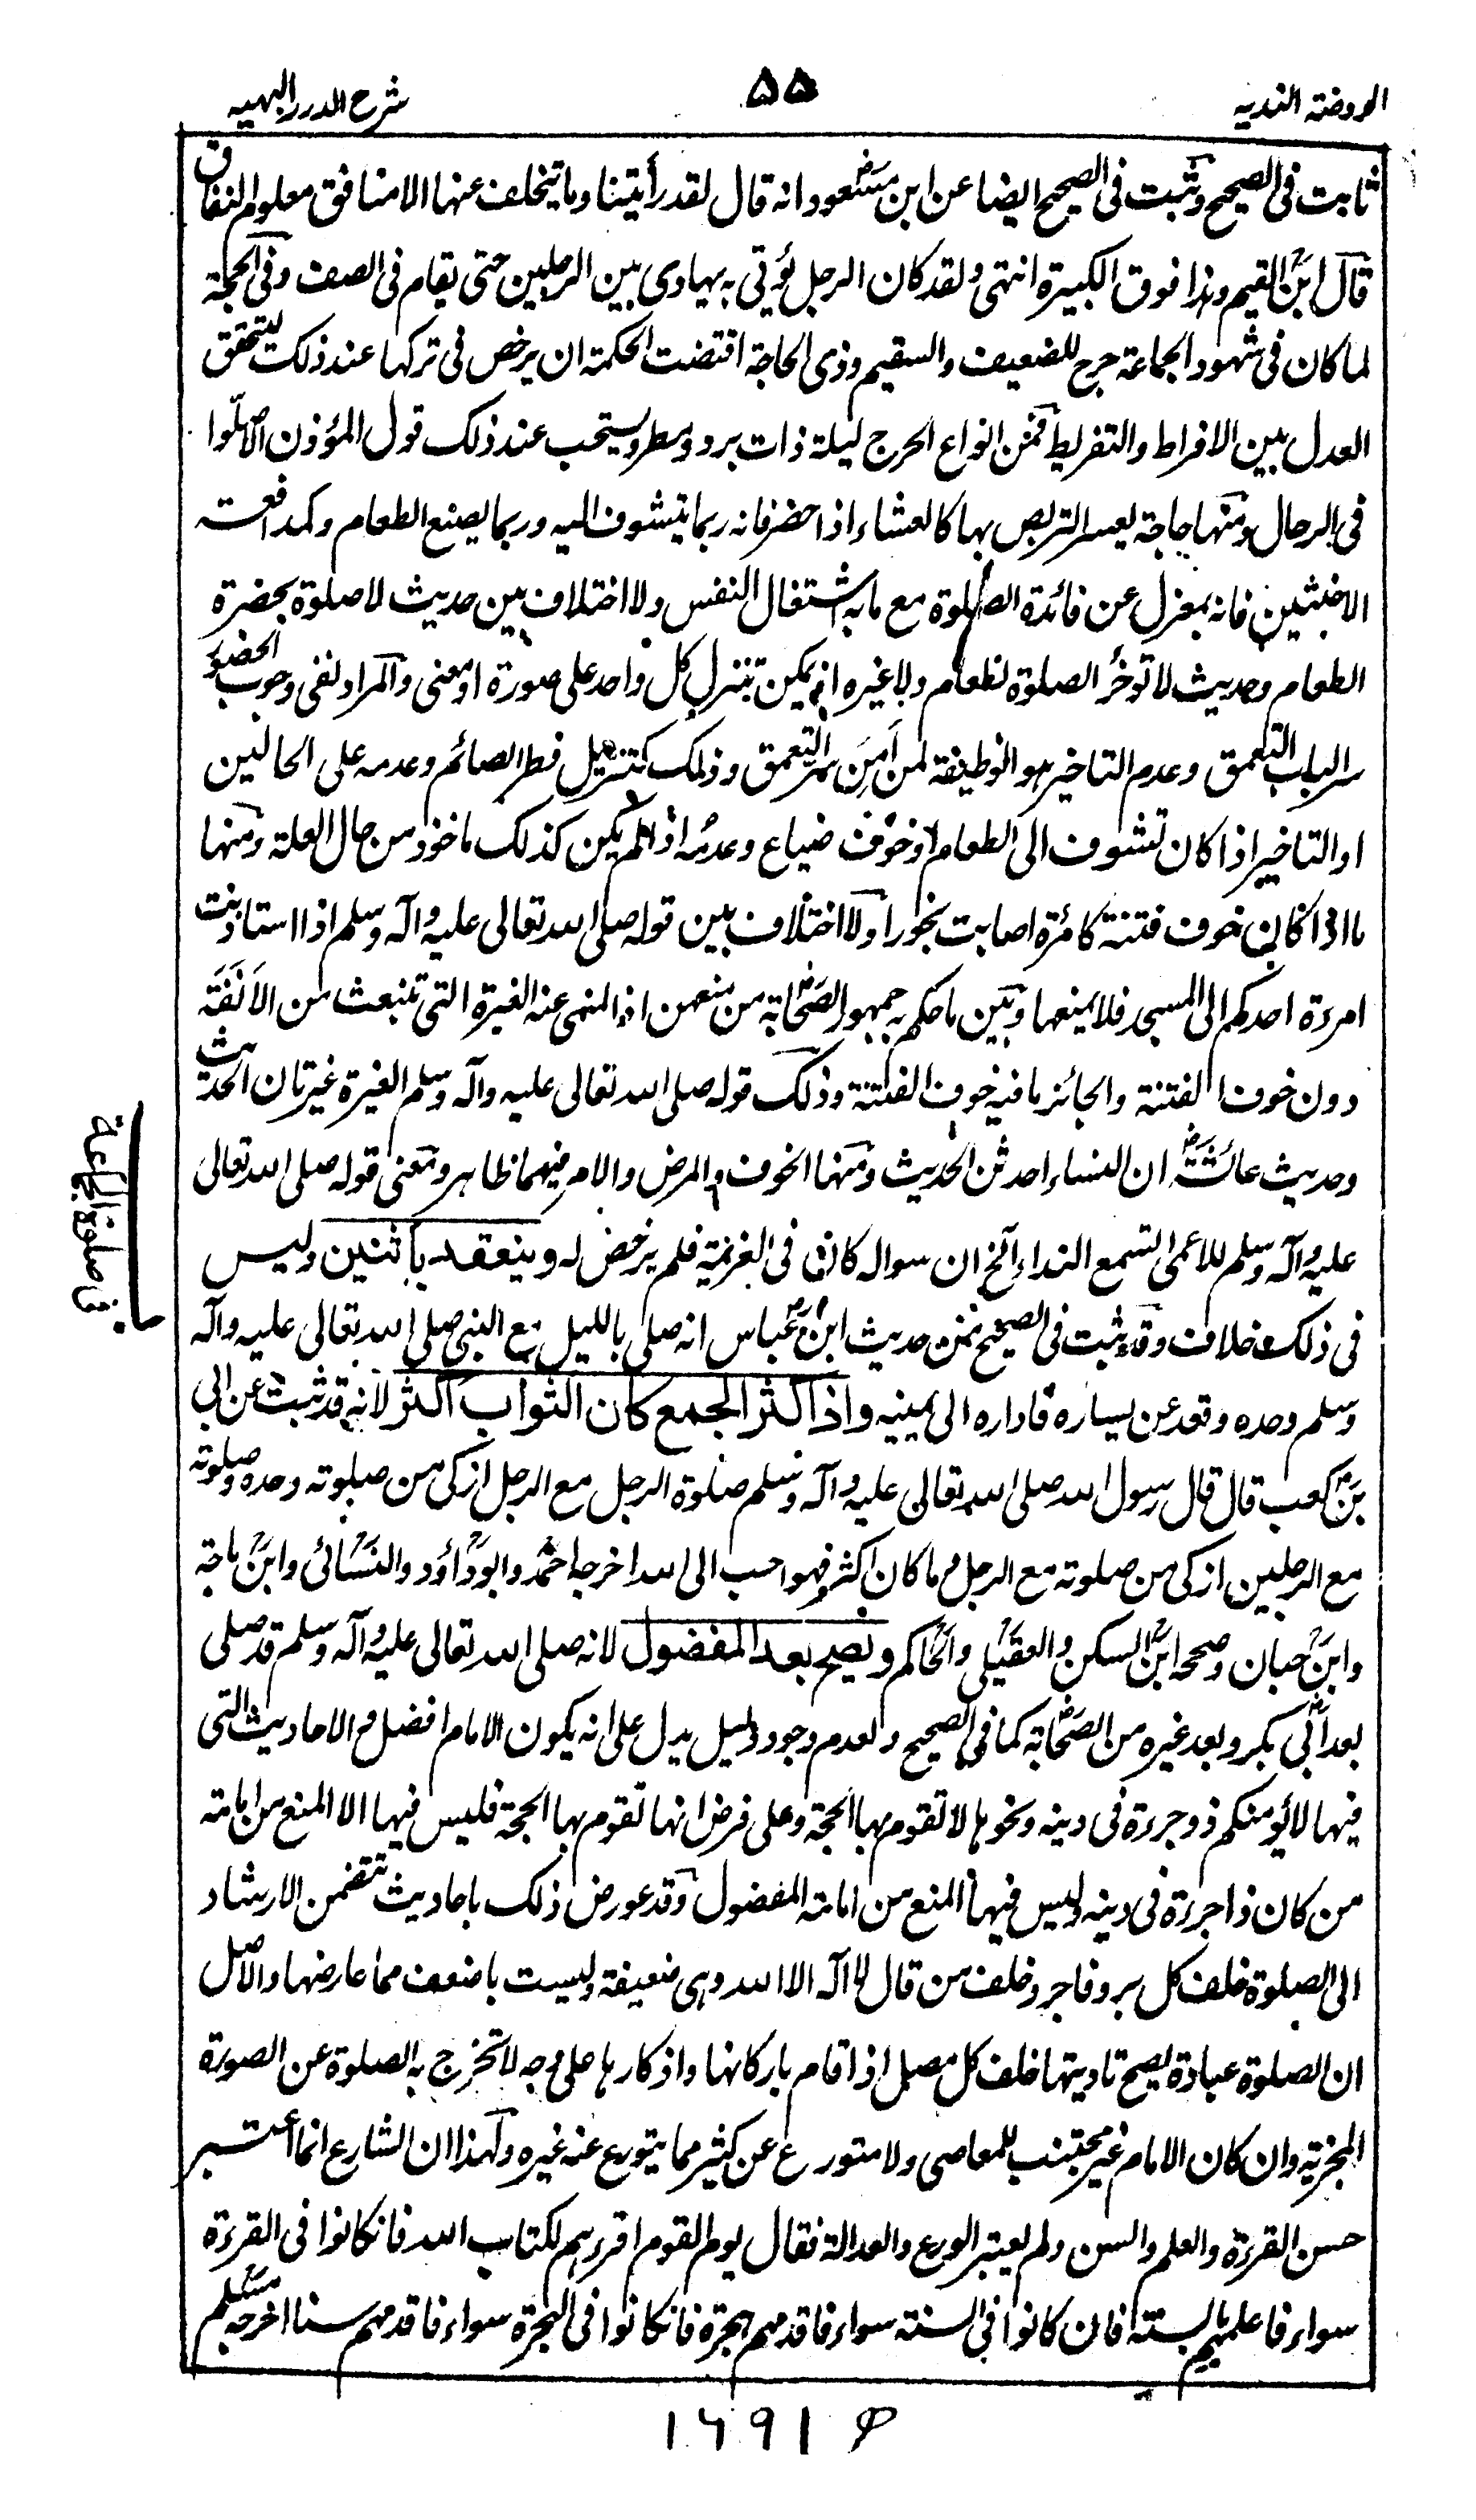 الروضة الندیہ
۵۵
شرح الدرر البہیہ
ثابت فی الصحیح وثبت فی الصحیح ایضا عن ابن مسعود انہ قال لقد رأیتنا وما یتخلف عنہا الا منافق معلوم النفاق
قال ابن القیم وہذا فوق الکبیرۃ انتہی ولقد کان الرجل یؤتی بہ یہادی بین الرجلین حتی یقام فی الصف وفی الحجۃ
لما کان فی شہود الجماعۃ حرج للضعیف والسقیم وذی الحاجۃ اقتضت الحکمۃ ان یرخص فی ترکہا عند ذلک لیتحقق
العدل بین الافراط والتفریط فمن انواع الحرج لیلۃ ذات برد ومطر ویستحب عند ذلک قول المؤذن الا صلوا
فی الرحال ومنہا حاجۃ یعسر التربص بہا کالعشاء اذا حضر فانہ ربما یتشوف الیہ وربما یضیع الطعام وکمدافعۃ
الاخبثین فانہ بمعزل عن فائدۃ الصلوۃ مع ما بہ اشتغال النفس ولا اختلاف بین حدیث لا صلوۃ بحضرۃ
الطعام وحدیث لا تؤخر الصلوۃ لطعام ولا غیرہ اذ یمکن تنزیل کل واحد علی صورۃ او معنی والمراد نفی وجوب الحضور
سدا لباب التعمق وعدم التاخیر ہو الوظیفۃ لمن امن شر التعمق وذلک کتنزیل فطر الصائم وعدمہ علی الحالین
او التاخیر اذا کان تشوف الی الطعام او خوف ضیاع وعدمہ اذا لم یکن کذلک ماخوذ من حال العلۃ ومنہا
ما اذا کان خوف فتنۃ کامرۃ اصابت بخورا ولا اختلاف بین قولہ صلی اللہ تعالی علیہ وآلہ وسلم اذا استاذنت
امرءۃ احدکم الی المسجد فلا یمنعہا وبین ما حکم بہ جمہور الصحابۃ من منعہن اذ المنہی عنہ الغیرۃ التی تنبعث من الانفۃ
دون خوف الفتنۃ والجائز ما فیہ خوف الفتنۃ وذلک قولہ صلی اللہ تعالی علیہ وآلہ وسلم الغیرۃ غیرتان الحدیث
وحدیث عائشۃ ان النساء احدثن الحدیث ومنہا الخوف والمرض والامر فیہما ظاہر ومعنی قولہ صلی اللہ تعالی
علیہ وآلہ وسلم للاعمی اتسمع النداء الخ ان سوالہ کان فی العزیمۃ فلم یرخص لہ وینعقد باثنین ولیس
فی ذلک خلاف وقد ثبت فی الصحیح من حدیث ابن عباس انہ صلی باللیل مع النبی صلی اللہ تعالی علیہ وآلہ
وسلم وحدہ وقعد عن یسارہ فادارہ الی یمینہ واذا کثر الجمع کان الثواب اکثر لانہ قد ثبت عن ابی
بن کعب قال قال رسول اللہ صلی اللہ تعالی علیہ وآلہ وسلم صلوۃ الرجل مع الرجل ازکی من صلوتہ وحدہ وصلوتہ
مع الرجلین ازکی من صلوتہ مع الرجل وما کان اکثر فہو احب الی اللہ اخرجہ احمد وابو داؤد والنسائی وابن ماجۃ
وابن حبان وصححہ ابن السکن والعقیلی والحاکم ویصح بعد المفضول لانہ صلی اللہ تعالی علیہ وآلہ وسلم قد صلی
بعد ابی بکر وبعد غیرہ من الصحابۃ کما فی الصحیح ولعدم وجود دلیل یدل علی انہ یکون الامام افضل والاحادیث التی
فیہا لا یؤمنکم ذو جرءۃ فی دینہ ونحوہا لا تقوم بہا الحجۃ وعلی فرض انہا تقوم بہا الحجۃ فلیس فیہا الا المنع من امامۃ
من کان ذا جرءۃ فی دینہ ولیس فیہا المنع من امامۃ المفضول وقد عورض ذلک باحادیث تتضمن الارشاد
الی الصلوۃ خلف کل بر وفاجر وخلف من قال لا الہ الا اللہ وہی ضعیفۃ ولیست باضعف مما عارضہا والاصل
ان الصلوۃ عبادۃ یصح تادیتہا خلف کل مصل اذا قام بارکانہا واذکارہا علی وجہ لا تخرج بہ الصلوۃ عن الصورۃ
المجزیۃ وان کان الامام غیر مجتنب للمعاصی ولا متورع عن کثیر مما یتورع عنہ غیرہ ولہذا ان الشارع انما اعتبر
حسن القرءۃ والعلم والسن ولم یعتبر الورع والعدالۃ فقال یوم القوم اقرءہم لکتاب اللہ فان کانوا فی القرءۃ
سواء فاعلمہم بالسنۃ فان کانوا فی السنۃ سواء فاقدمہم ہجرۃ فان کانوا فی الہجرۃ سواء فاقدمہم سنا اخرجہ مسلم
ف صلوۃ الجماعۃ
۱۶۹۱